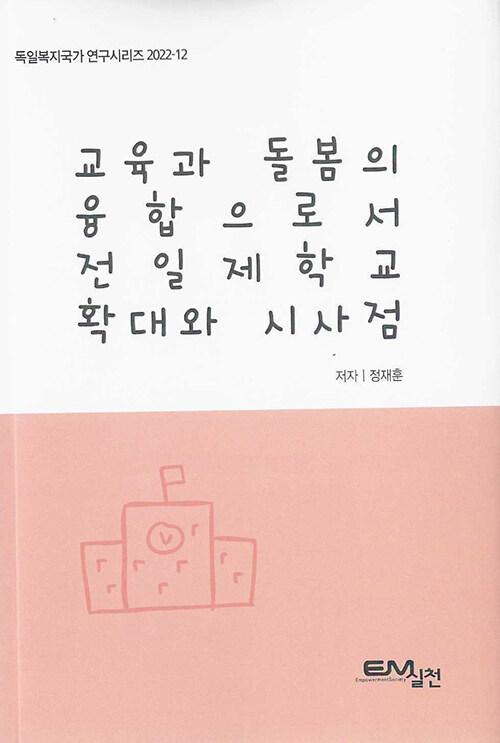 독일복지국가 연구시리즈 2022-12
교육과 돌봄의
융합으로서
전일제학교
확대와 시사점
저자 | 정재훈
EM실천
EmpowermentSociety